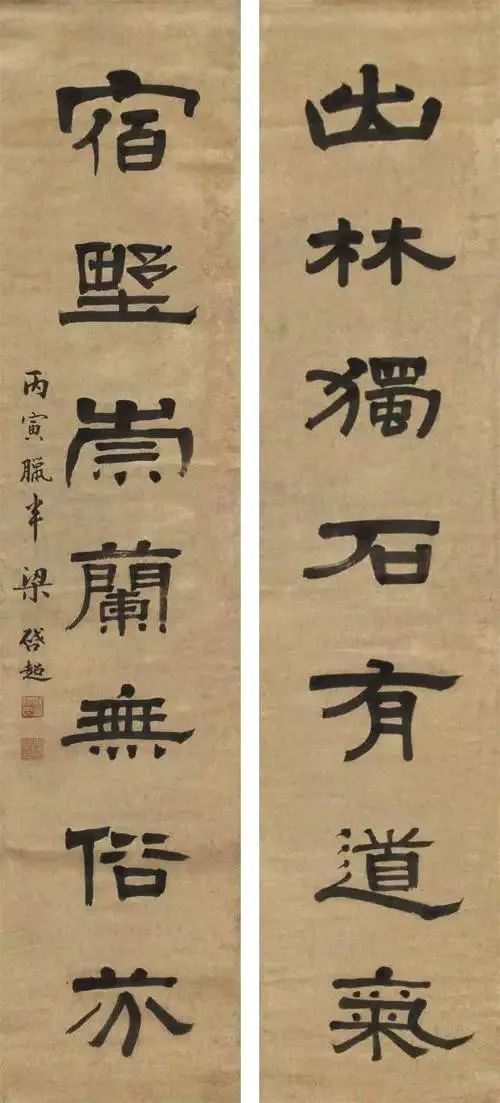 出林獨石有道氣
宿野崇蘭無俗
丙寅臘半 梁啓超